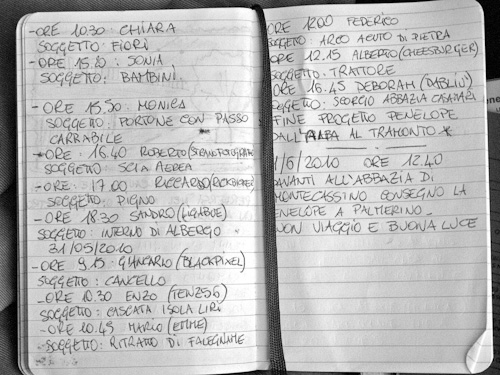 -ORE 10.30 : CHIARA
SOGGETTO : FIORI
-ORE 15.20 : SONIA
SOGGETTO : BAMBINI.
-ORE 15.50 : MONICA
SOGGETTO : PORTONE CON PASSO
CARRABILE
-ORE : 16.40 ROBERTO
SOGGETTO : SCIA AEREA
-ORE : 17.00 RICCARDO
SOGGETTO : PIGNO
-ORE 18.30 SANDRO (LIGABUE)
SOGGETTO : INTERNO DI ALBERGO
31/05/2010
-ORE 9.15 : GIANCARLO (BLACKPIXEL)
SOGGETTO : CANCELLO
-ORE 10.30 ENZO (TENZ56)
SOGGETTO : CASCATA ISOLA LIRI
-ORE 10.45 MARIO (EMME)
SOGGETTO : RITRATTO DI FALEGNAME
ORE 12.00 FEDERICO
SOGGETTO : ARCO ACUTO DI PIETRA
ORE 12.15 ALBERTO (CHEESBURGER)
SOGGETTO : TRATTORE
ORE 16.45 DEBORAH (DABLIU)
SOGGETTO : SCORCIO ABBAZIA CASAMARI
FINE PROGETTO PENELOPE
DALL'ALBA AL TRAMONTO
1/6/2010 ORE 12.40
DAVANTI ALL'ABBAZIA DI
MONTECASSINO CONSEGNO LA
PENELOPE A PALMERINO
UON VIAGGIO E BUONA LUCE